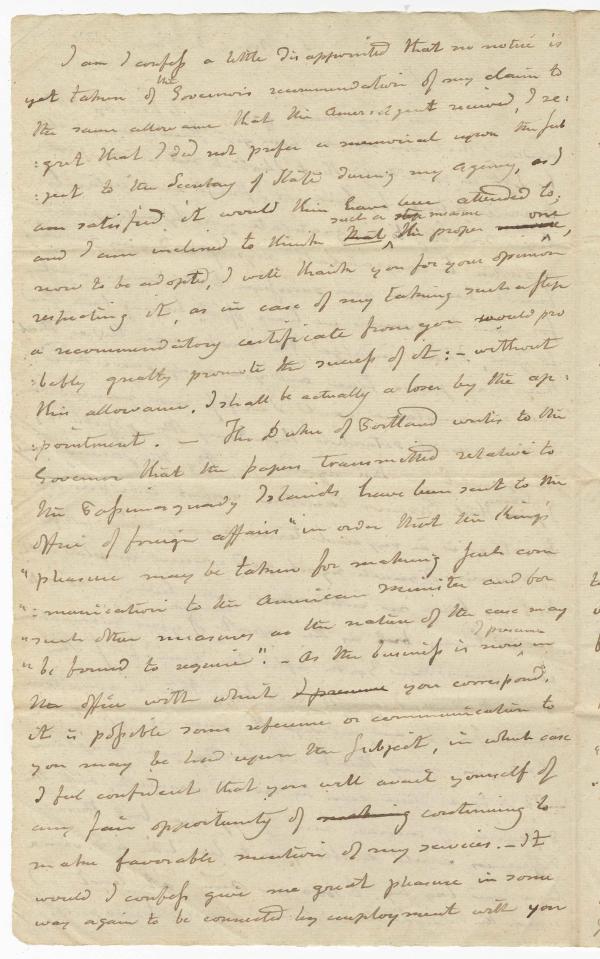 I am I confess a little disappointed that no notice is
yet taken of the Governors recommendation of my claim to
the same allowance that the Amern Agent received, I re:
:gret that I did not prefer a memorial upon the sub
:ject to the Secretary of State during my Agency, as I
am satisfied it would then have been attended to;
and I am inclined to think that such a step measure the proper measure one,
now to be adopted, I will thank you for your opinion
respecting it, as in case of my taking such a step
a recommendatory certificate from you would pro
:bably greatly promote the success of it: – without
this allowance, I shall be actually a loser by the ap:
:pointment. – The Duke of Portland writes to the
Governor that the papers transmitted relative to
the Passamaquady Islands have been sent to the
office of foreign affairs "in order that the King's
"pleasure may be taken for making such com
":munication to the American minister and for
"such other measures as the nature of the case may
"be found to require". – As the business is now I presume in
the office with which I presume you correspond,
it is possible some reference or communication to
you may be had upon the Subject, in which case
I feel confident that you will avail yourself of
any fair opportunity of making continuing to
make favorable mention of my services. – It
would I confess give me great pleasure in some
way again to be connected by employment with you